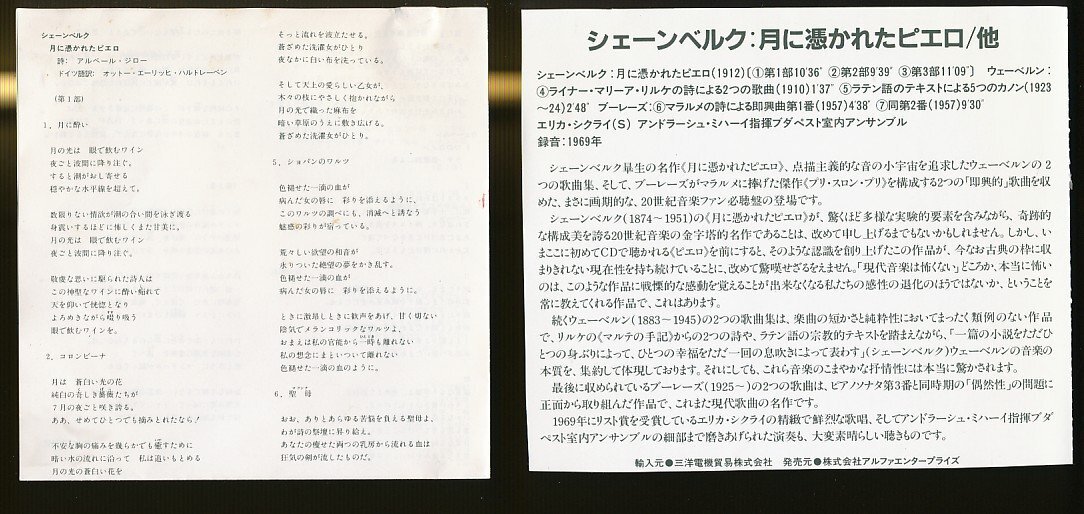 シェーンベルク
月に憑かれたピエロ
詩: アルベール・ジロー
ドイツ語訳: オットー・エーリッヒ・ハルトレーベン
(第1部)
1. 月に酔い
月の光は 眼で飲むワイン
夜ごと波間に降り注ぐ。
すると潮がおし寄せる
穏やかな水平線を超えて。
数限りない情欲が潮の合い間を泳ぎ渡る
身震いするほどに怖しくまた甘美に。
月の光は 眼で飲むワイン
夜ごと波間に降り注ぐ。
敬虔な思いに駆られた詩人は
この神聖なワインに酔い痴れて
天を仰いで恍惚となり
よろめきながら啜り吸う
眼で飲むワインを。
2. コロンビーナ
月は 蒼白い光の花
純白の奇しき薔薇たちが
7月の夜ごと咲き誇る。
ああ、せめてひとつでも摘みとれたなら!
不安な胸の痛みを幾らかでも癒すために
暗い水の流れに沿って 私は追いもとめる
月の光の蒼白い花を
そっと流れを波立たせる。
蒼ざめた洗濯女がひとり
夜なかに白い布を洗っている。
そして天上の愛らしい乙女が、
木々の枝にやさしく抱かれながら
月の光で織った麻布を
暗い草原のうえに敷き広げる。
蒼ざめた洗濯女がひとり。
5. ショパンのワルツ
色褪せた一滴の血が
病んだ女の唇に 彩りを添えるように、
このワルツの調べにも、消滅へと誘なう
魅惑の彩りが宿っている。
荒々しい欲望の和音が
氷りついた絶望の夢をかき乱す。
色褪せた一滴の血が
病んだ女の唇に 彩りを添えるように。
ときに激昂しときに歓声をあげ、甘く切ない
陰気でメランコリックなワルツよ、
おまえは私の官能から一時も離れない
私の想念にまといついて離れない
色褪せた一滴の血のように。
6. 聖母
おお、ありとあらゆる苦悩を負える聖母よ、
わが詩の祭壇に昇り給え。
あなたの痩せた両つの乳房から流れる血は
狂気の剣が流したものだ。
シェーンベルク:月に憑かれたピエロ/他
シェーンベルク:月に憑かれたピエロ(1912)〔①第1部10'36" ②第2部9'39" ③第3部11'09"〕 ウェーベルン:
④ライナー・マリーア・リルケの詩による2つの歌曲(1910)1'37" ⑤ラテン語のテキストによる5つのカノン(1923
〜24)2'48" ブーレーズ:⑥マラルメの詩による即興曲第1番(1957)4'38" ⑦同第2番(1957)9'30"
エリカ・シクライ(S) アンドラーシュ・ミハーイ指揮ブダペスト室内アンサンブル
録音:1969年
シェーンベルク畢生の名作《月に憑かれたピエロ》、点描主義的な音の小宇宙を追求したウェーベルンの2
つの歌曲集、そして、ブーレーズがマラルメに捧げた傑作《プリ・スロン・プリ》を構成する2つの「即興的」歌曲を収
めた、まさに画期的な、20世紀音楽ファン必聴盤の登場です。
シェーンベルク(1874〜1951)の《月に憑かれたピエロ》が、驚くほど多様な実験的要素を含みながら、奇跡的
な構成美を誇る20世紀音楽の金字塔的名作であることは、改めて申し上げるまでもないかもしれません。しかし、い
まここに初めてCDで聴かれる《ピエロ》を前にすると、そのような認識を創り上げたこの作品が、今なお古典の枠に収
まりきれない現在性を持ち続けていることに、改めて驚嘆せざるをえません。「現代音楽は怖くない」どころか、本当に怖い
のは、このような作品に戦慄的な感動を覚えることが出来なくなる私たちの感性の退化のほうではないか、ということを
常に教えてくれる作品で、これはあります。
続くウェーベルン(1883〜1945)の2つの歌曲集は、楽曲の短かさと純粋性においてまったく類例のない作品
で、リルケの《マルテの手記》からの2つの詩や、ラテン語の宗教的テキストを踏まえながら、「一篇の小説をただひ
とつの身ぶりによって、ひとつの幸福をただ一回の息吹きによって表わす」(シェーンベルク)ウェーベルンの音楽の
本質を、集約して体現しております。それにしても、これら音楽のこまやかな抒情性には本当に驚かされます。
最後に収められているブーレーズ(1925〜)の2つの歌曲は、ピアノソナタ第3番と同時期の「偶然性」の問題に
正面から取り組んだ作品で、これまた現代歌曲の名作です。
1969年にリスト賞を受賞しているエリカ・シクライの精緻で鮮烈な歌唱、そしてアンドラーシュ・ミハーイ指揮ブダ
ペスト室内アンサンブルの細部まで磨きあげられた演奏も、大変素晴らしい聴きものです。
輸入元●三洋電機貿易株式会社 発売元●株式会社アルファエンタープライズ